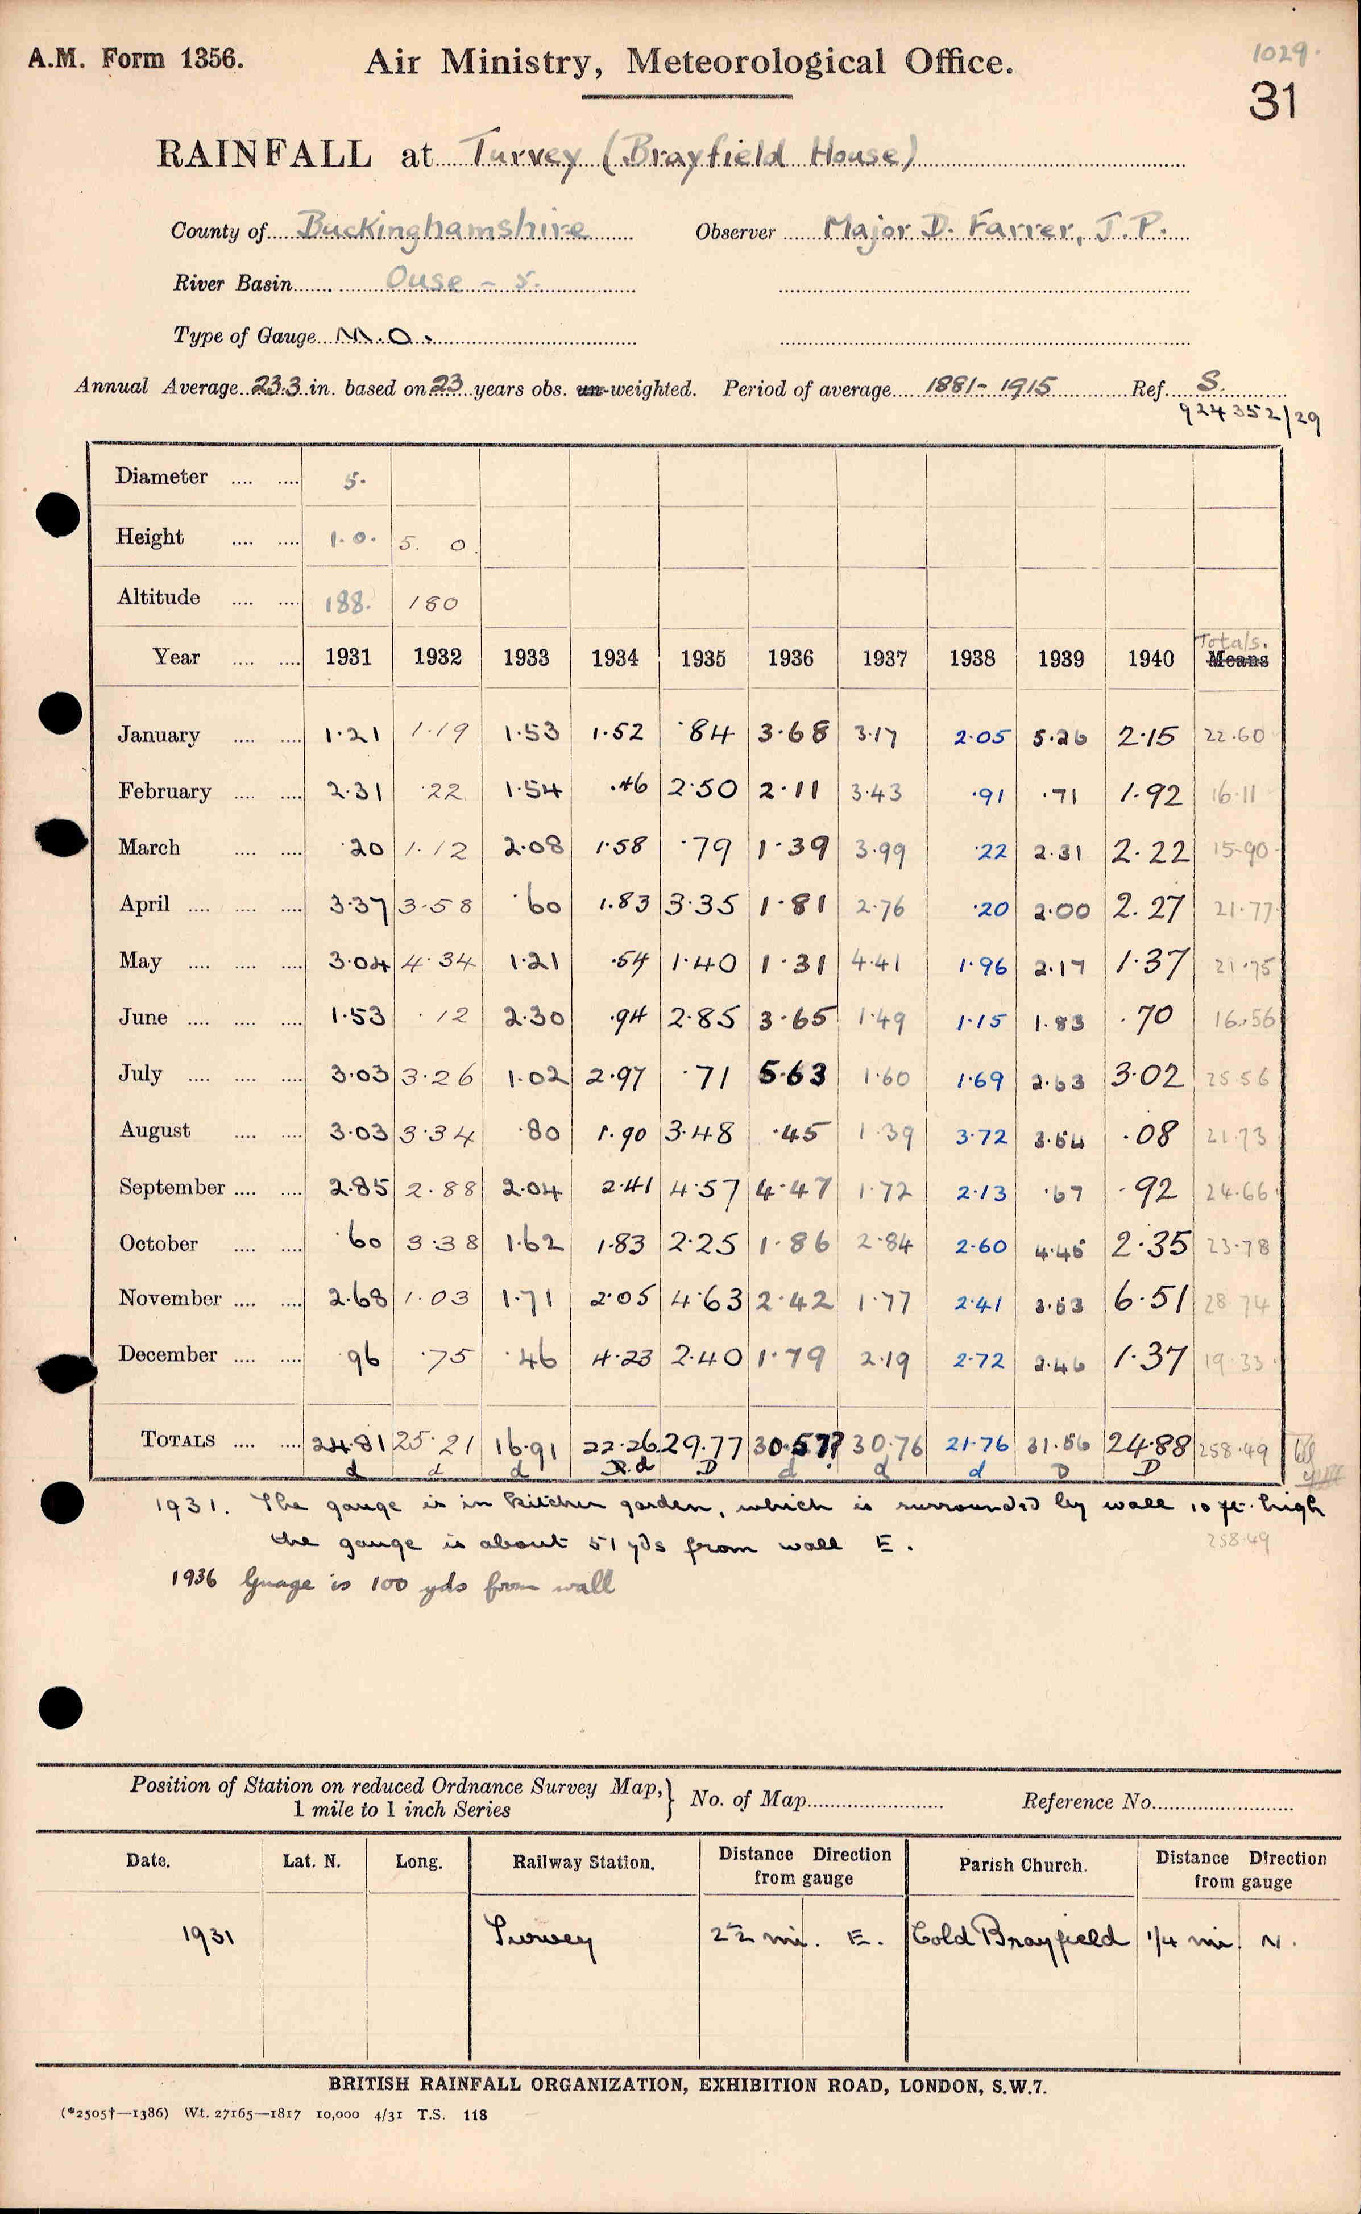 A.M. Form 1356.
Air Ministry, Meteorological Office.
1029.
31
RAINFALL at Turvey (Brayfield House)
County of Buckinghamshire Observer Major D. Farrer, J.P.
River Basin Ouse - 5.
Type of Gauge M.O.
Annual Average 23.3 in. based on 23 years obs. un-weighted. Period of average 1881-1915 Ref. S.
924352/29
Diameter 5.
Height 1.0. 5. 0.
Altitude 188. 180
Totals.
Year 1931 1932 1933 1934 1935 1936 1937 1938 1939 1940 Means
January 1.21 1.19 1.53 1.52 .84 3.68 3.17 2.05 5.26 2.15 22.60
February 2.31 .22 1.54 .46 2.50 2.11 3.43 .91 .71 1.92 16.11
March .20 1.12 2.08 1.58 .79 1.39 3.99 .22 2.31 2.22 15.90
April 3.37 3.58 .60 1.83 3.35 1.81 2.76 .20 2.00 2.27 21.77
May 3.04 4.34 1.21 .54 1.40 1.31 4.41 1.96 2.17 1.37 21.75
June 1.53 .12 2.30 .94 2.85 3.65 1.49 1.15 1.83 .70 16.56
July 3.03 3.26 1.02 2.97 .71 5.63 1.60 1.69 2.63 3.02 25.56
August 3.03 3.34 .80 1.90 3.48 .45 1.39 3.72 3.54 .08 21.73
September 2.85 2.88 2.04 2.41 4.57 4.47 1.72 2.13 .67 .92 24.66
October .60 3.38 1.62 1.83 2.25 1.86 2.84 2.60 4.45 2.35 23.78
November 2.68 1.03 1.71 2.05 4.63 2.42 1.77 2.41 3.53 6.51 28.74
December .96 .75 .46 4.23 2.40 1.79 2.19 2.72 2.46 1.37 19.33
TOTALS 24.81 25.21 16.91 22.26 29.77 30.57? 30.76 21.76 31.56 24.88 258.49
d d d d D d d d D D
1931. The gauge is in kitchen garden, which is surrounded by wall 10 ft. high
the gauge is about 51 yds from wall E.
258.49
1936 Guage is 100 yds from wall
Position of Station on reduced Ordnance Survey Map, No. of Map Reference No.
1 mile to 1 inch Series
Date. Lat. N. Long. Railway Station. Distance Direction from gauge Parish Church. Distance Direction from gauge
1931 Turvey 2½ mi. E. Cold Brayfield 1/4 mi. N.
BRITISH RAINFALL ORGANIZATION, EXHIBITION ROAD, LONDON, S.W.7.
(*2505†—1386) Wt. 27165—1817 10,000 4/31 T.S. 118